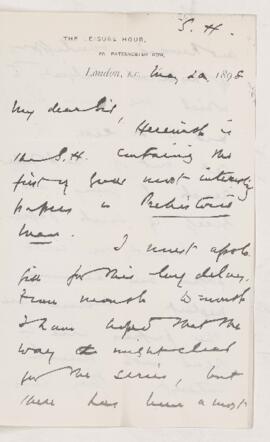 S. H.
THE LEISURE HOUR,
56, PATERNOSTER ROW,
London, E.C. May 20 1895
My dear Sir,
Herewith is
the S.H. containing the
first of your most interesting
papers on Prehistoric
Man.
I must apolo
gise for this long delay.
From month to month
I have hoped that the
way might clear
for the series, but
there has been a most